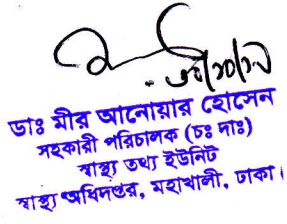 ডাঃ মীর আনোয়ার হোসেন
সহকারী পরিচালক (চঃ দাঃ)
স্বাস্থ্য তথ্য ইউনিট
স্বাস্থ্য অধিদপ্তর, মহাখালী, ঢাকা।